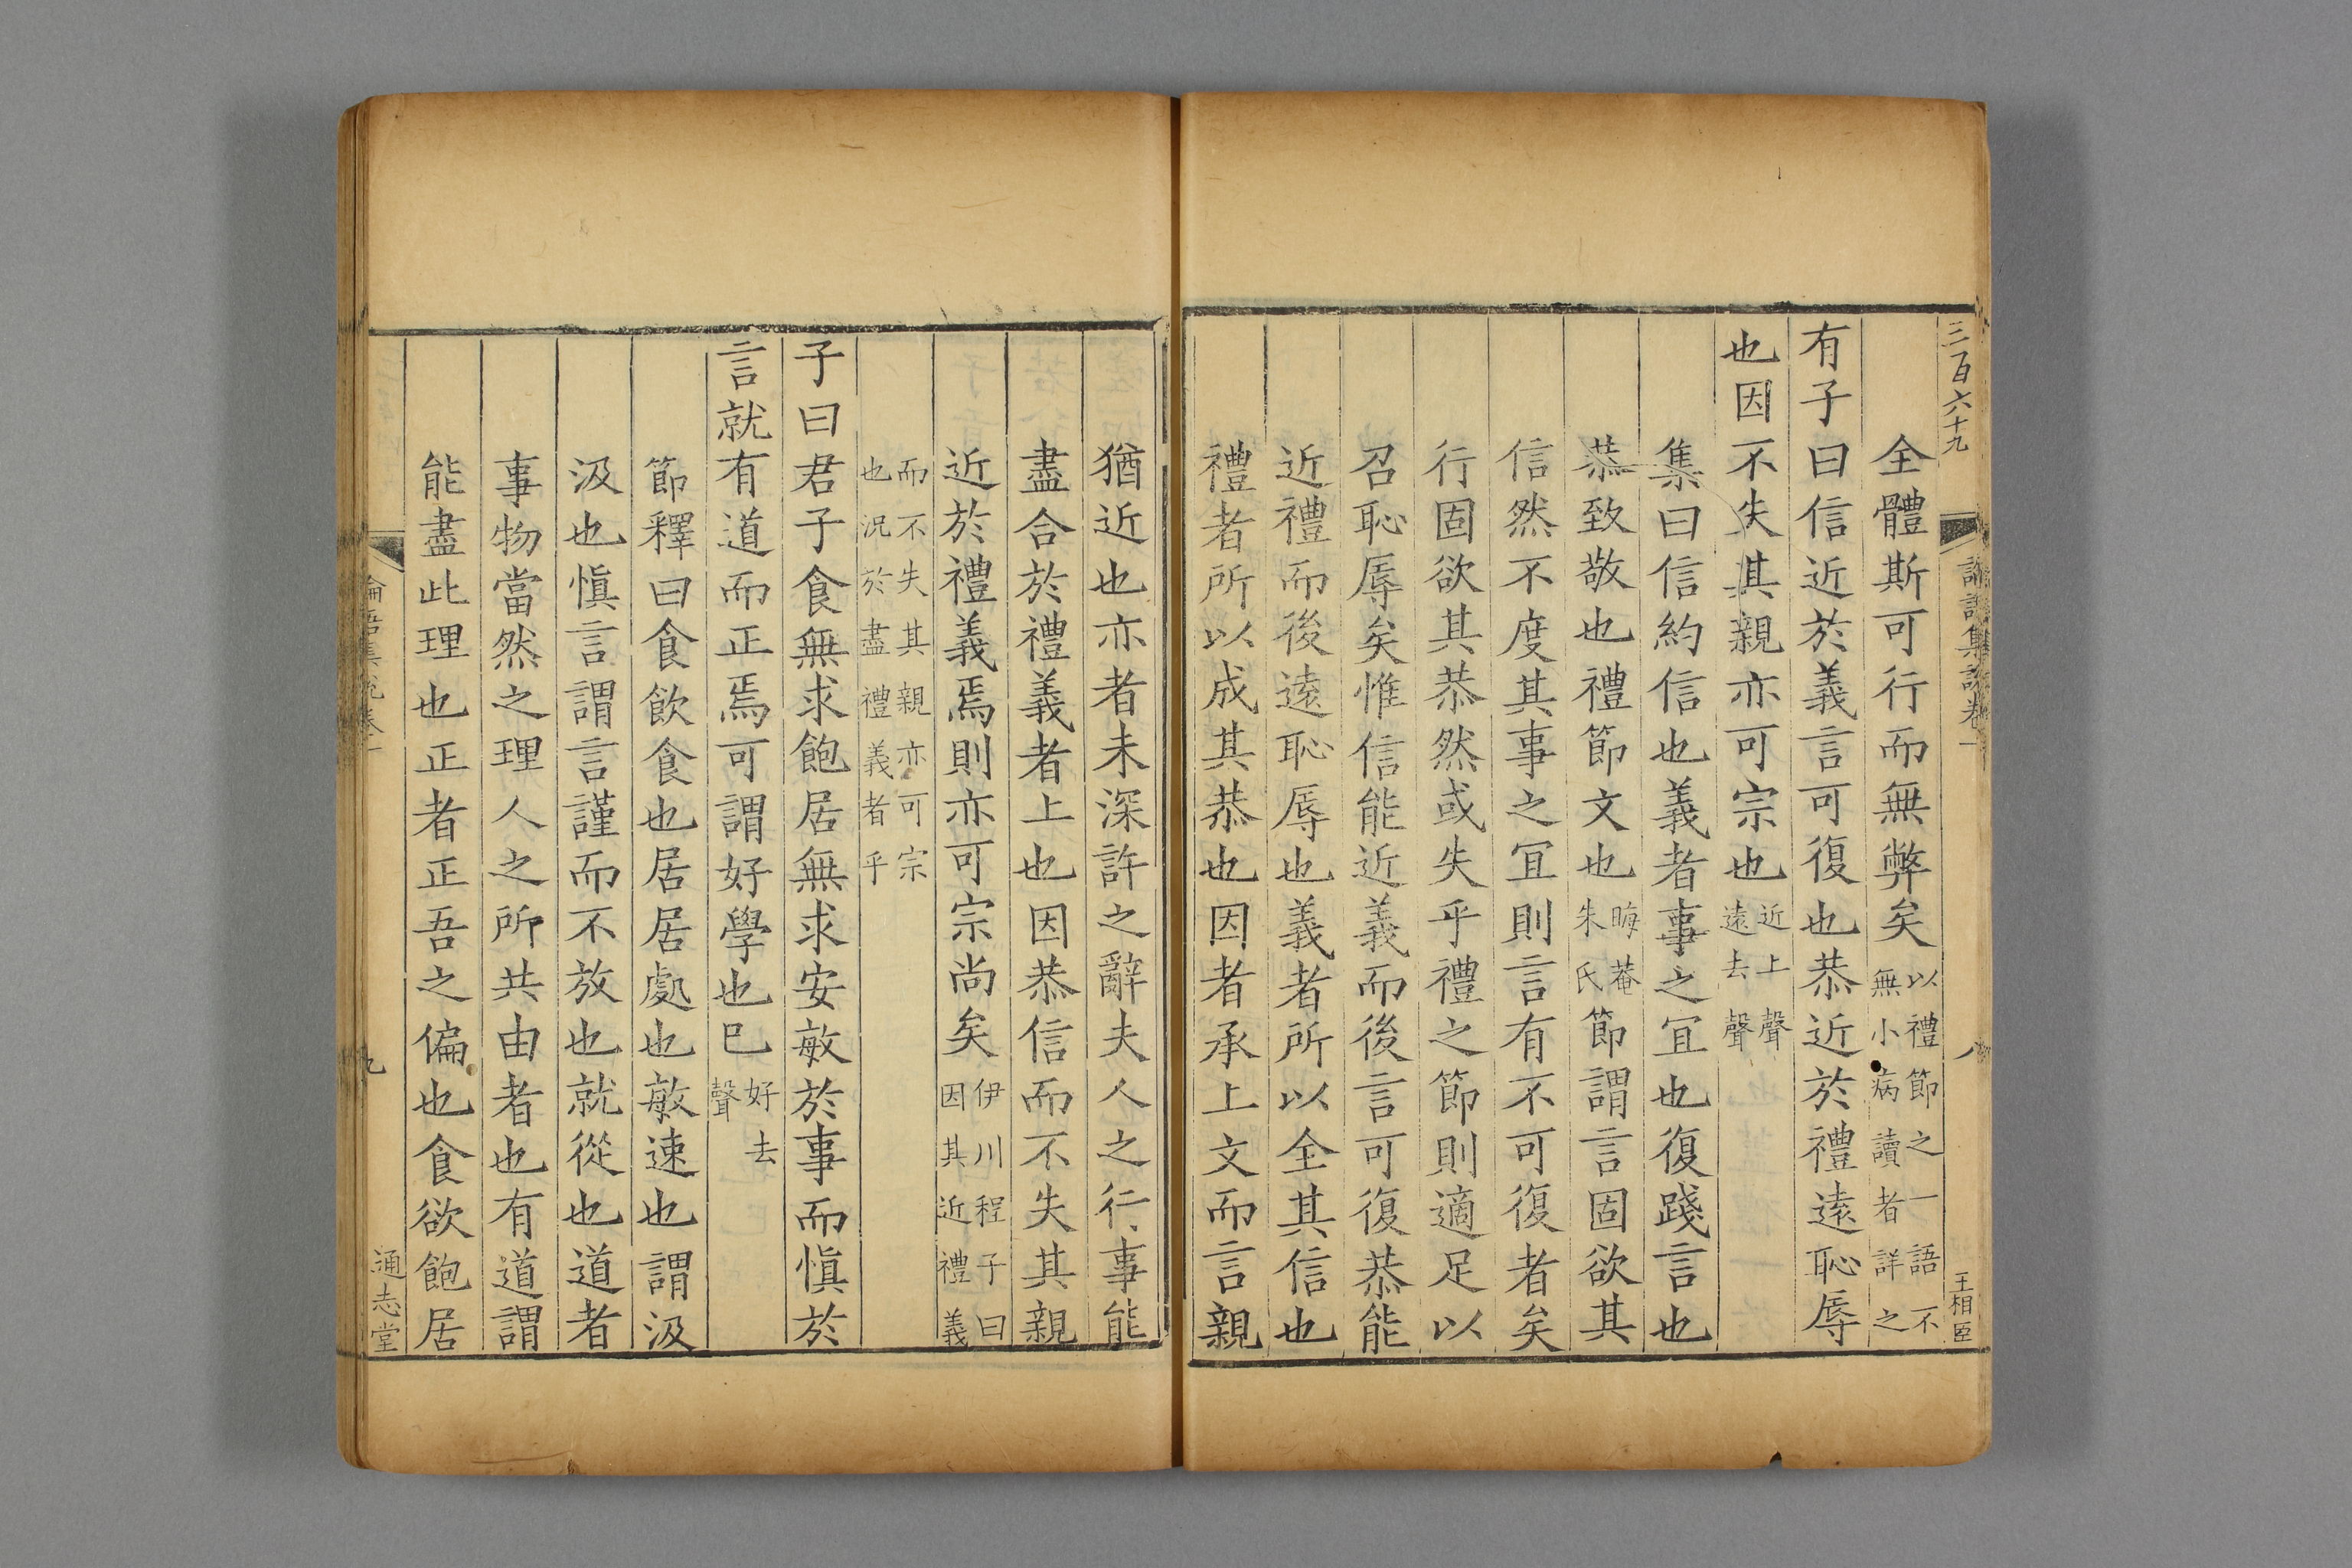 三百六十九
論語集說卷一
八
王相臣
全體斯可行而無弊矣以禮節之一語不無小病讀者詳之
有子曰信近於義言可復也恭近於禮遠恥辱
也因不失其親亦可宗也近上聲遠去聲
集曰信約信也義者事之冝也復踐言也
恭致敬也禮節文也晦菴朱氏節謂言固欲其
信然不度其事之冝則言有不可復者矣
行固欲其恭然或失乎禮之節則適足以
召恥辱矣惟信能近義而後言可復恭能
近禮而後遠恥辱也義者所以全其信也
禮者所以成其恭也因者承上文而言親
猶近也亦者未深許之辭夫人之行事能
盡合於禮義者上也因恭信而不失其親
近於禮義焉則亦可宗尚矣伊川程子曰因其近禮義
而不失其親亦可宗也況於盡禮義者乎
子曰君子食無求飽居無求安敏於事而慎於
言就有道而正焉可謂好學也巳好去聲
節釋曰食飲食也居居處也敏速也謂汲
汲也慎言謂言謹而不放也就從也道者
事物當然之理人之所共由者也有道謂
能盡此理也正者正吾之偏也食欲飽居
論語集說卷一
九
通志堂